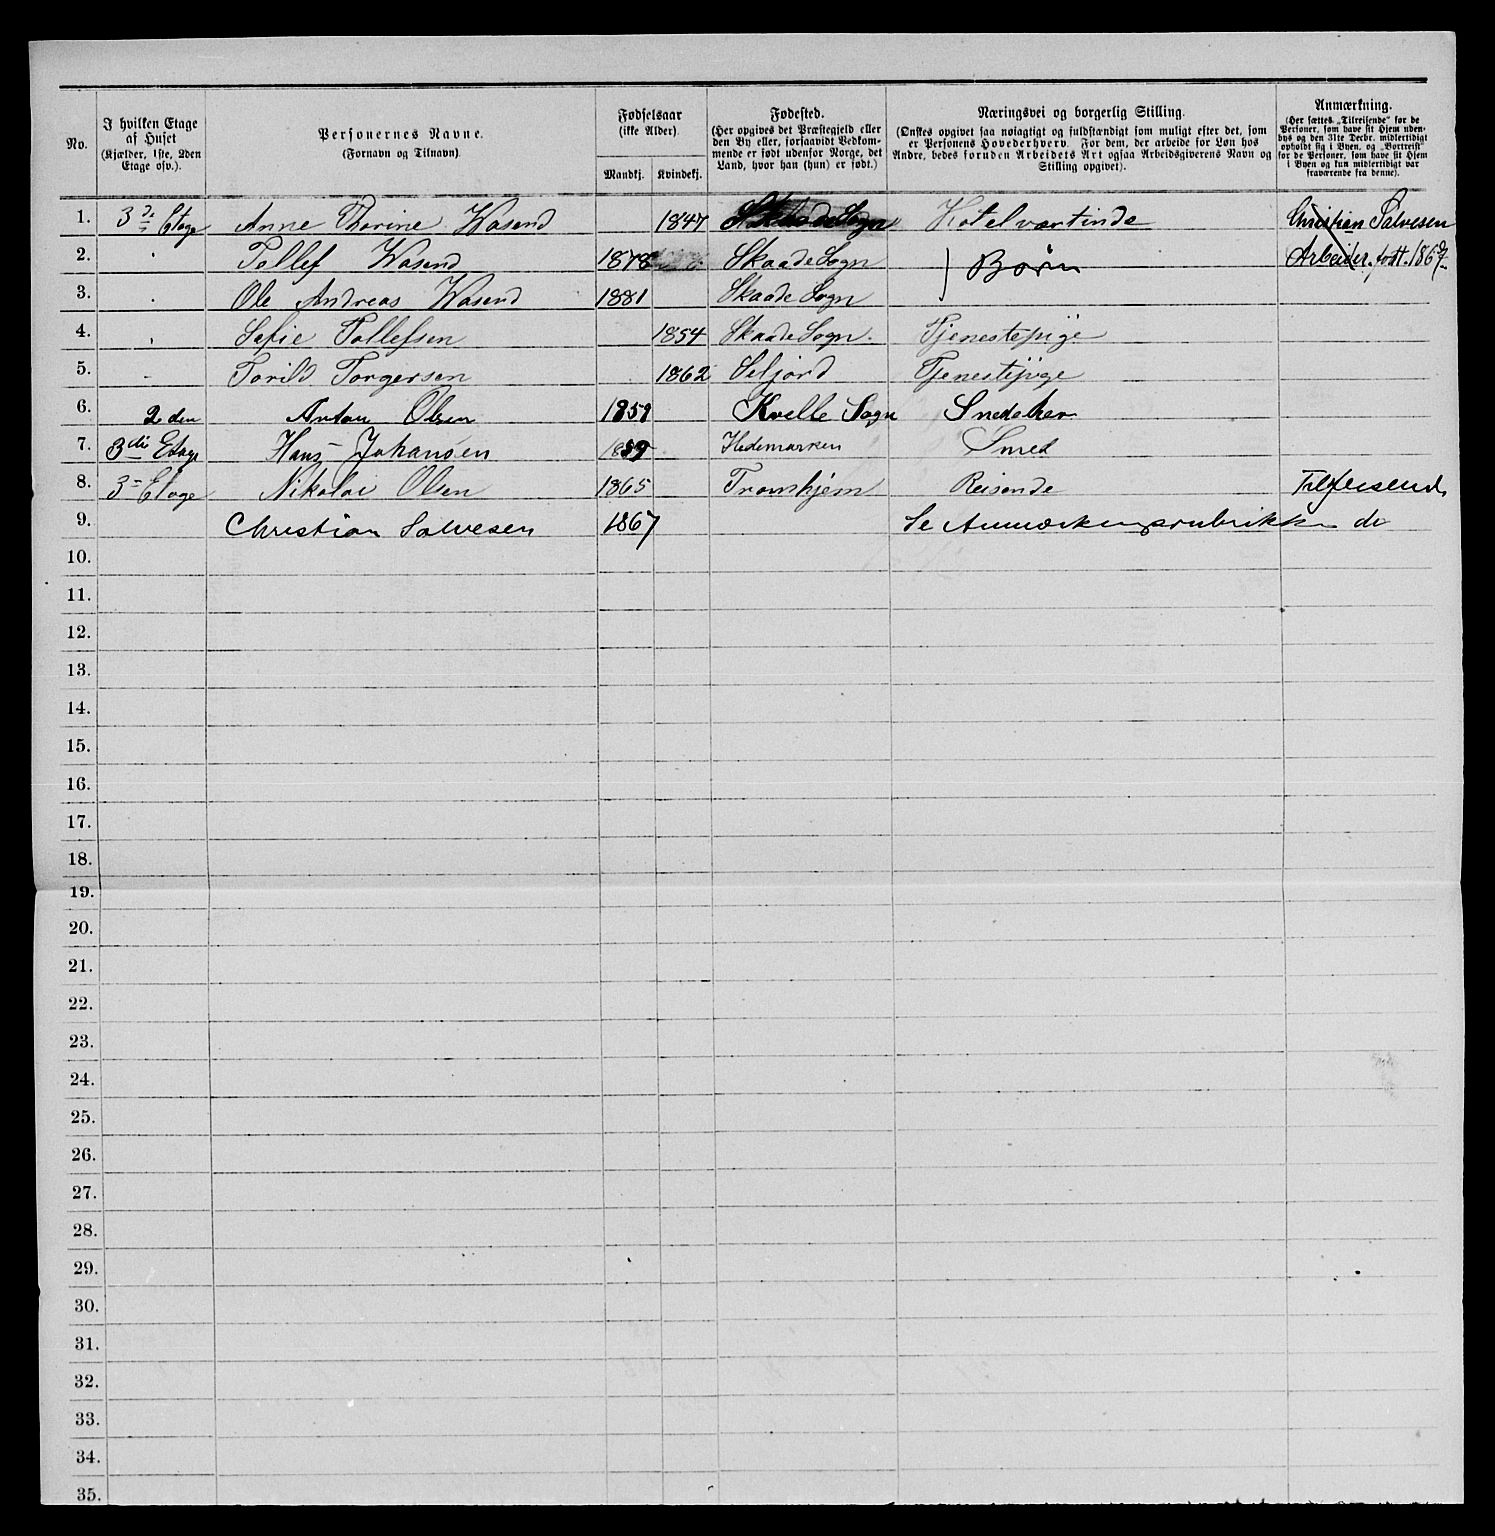 No.
I hvilken Etage af Huset (Kjælder, 1ste, 2den Etage osv.).
Personernes Navne. (Fornavn og Tilnavn)
Fødselsaar (ikke Alder)
Mandkj. Kvindekj.
Fødested. (Her opgives det Præstegjeld eller den By eller, forsaavidt Vedkommende er født udenfor Norge, det Land, hvor han (hun) er født.)
Næringsvei og borgerlig Stilling. (Ønskes opgivet saa nøiagtigt og fuldstændigt som muligt efter det, som er Personens Hovederhverv. For dem, der arbeide for Løn hos Andre, bedes foruden Arbeidets Art ogsaa Arbeidsgiverens Navn og Stilling opgivet).
Anmærkning. (Her sættes „Tilreisende" for de Personer, som have sit Hjem udenbys og den 31te Decbr. midlertidigt opholdt sig i Byen, og „Bortreist" for de Personer, som have sit Hjem i Byen og kun midlertidigt var fraværende fra denne).
1. 3de Etage Anne Therine Wasend 1847 Skaade Sogn Hotelværtinde Christian Salvesen
2. Tellef Wasend 1878 Skaade Sogn } Børn Arbeider, født. 1867
3. Ole Andreas Wasend 1881 Skaade Sogn
4. Sofie Tollefsen 1854 Skaade Sogn. Tjenestepige
5. Torild Torgersen 1862 Seljord Tjenestepige
6. 2den Anton Olsen 1859 Kvelle Sogn Snedeker
7. 3die Etage Hans Johansen 1859 Hedemarken Smed
8. 3 Etage Nikolai Olsen 1865 Tromhjem Reisende Tilreisende
9. Christian Salvesen 1867 Se Anmærkningsrubrikken do
10.
11.
12.
13.
14.
15.
16.
17.
18.
19.
20.
21.
22.
23.
24.
25.
26.
27.
28.
29.
30.
31.
32.
33.
34.
35.